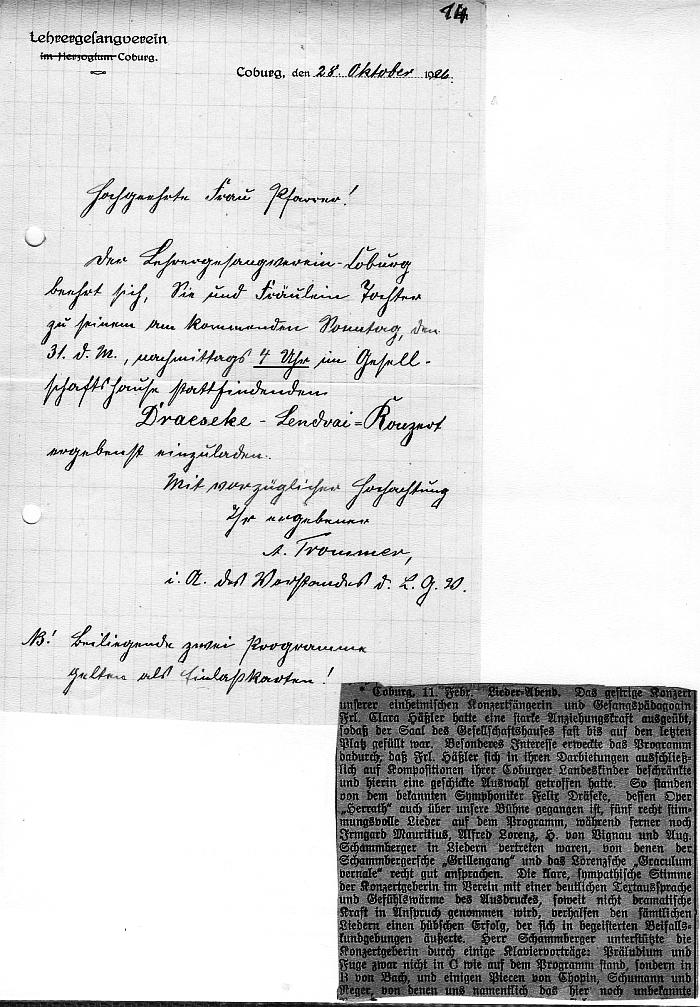 14
Lehrergesangverein
im Herzogtum Coburg.
Coburg, den 28. Oktober 1926.
Hochgeehrte Frau Pfarrer!
Der Lehrergesangverein-Coburg
beehrt sich, Sie und Fräulein Tochter
zu seinem am kommenden Sonntag, den
31. d. M., nachmittags 4 Uhr im Gesell-
schaftshause stattfindenden
Draeseke-Lendvai-Konzert
ergebenst einzuladen.
Mit vorzüglicher Hochachtung
Ihr ergebener
A. Trommer,
i. A. des Vorstandes d. L. G. V.
NB! Beiliegende zwei Programme
gelten als Einlaßkarten!
* Coburg, 11. Febr. Lieder-Abend. Das gestrige Konzert
unserer einheimischen Konzertsängerin und Gesangspädagogin
Frl. Clara Häßler hatte eine starke Anziehungskraft ausgeübt,
sodaß der Saal des Gesellschaftshauses fast bis auf den letzten
Platz gefüllt war. Besonderes Interesse erweckte das Programm
dadurch, daß Frl. Häßler sich in ihren Darbietungen ausschließ-
lich auf Kompositionen ihrer Coburger Landeskinder beschränkte
und hierin eine geschickte Auswahl getroffen hatte. So standen
von dem bekannten Symphoniker Felix Dräseke, dessen Oper
„Herrath“ auch über unsere Bühne gegangen ist, fünf recht stim-
mungsvolle Lieder auf dem Programm, während ferner noch
Irmgard Mauritius, Alfred Lorenz, H. von Vignau und Aug.
Schammberger in Liedern vertreten waren, von denen der
Schammbergersche „Grillengang“ und das Lorenzsche „Graculum
vernale“ recht gut ansprachen. Die klare, sympathische Stimme
der Konzertgeberin im Verein mit einer deutlichen Textaussprache
und Gefühlswärme des Ausdruckes, soweit nicht dramatische
Kraft in Anspruch genommen wird, verhalfen den sämtlichen
Liedern einen hübschen Erfolg, der sich in begeisterten Beifalls-
kundgebungen äußerte. Herr Schammberger unterstützte die
Konzertgeberin durch einige Klaviervorträge: Präludium und
Fuge zwar nicht in C wie auf dem Programm stand, sondern in
B von Bach, und einigen Piecen von Chopin, Schumann und
Reger, von denen uns namentlich das hier noch unbekannte